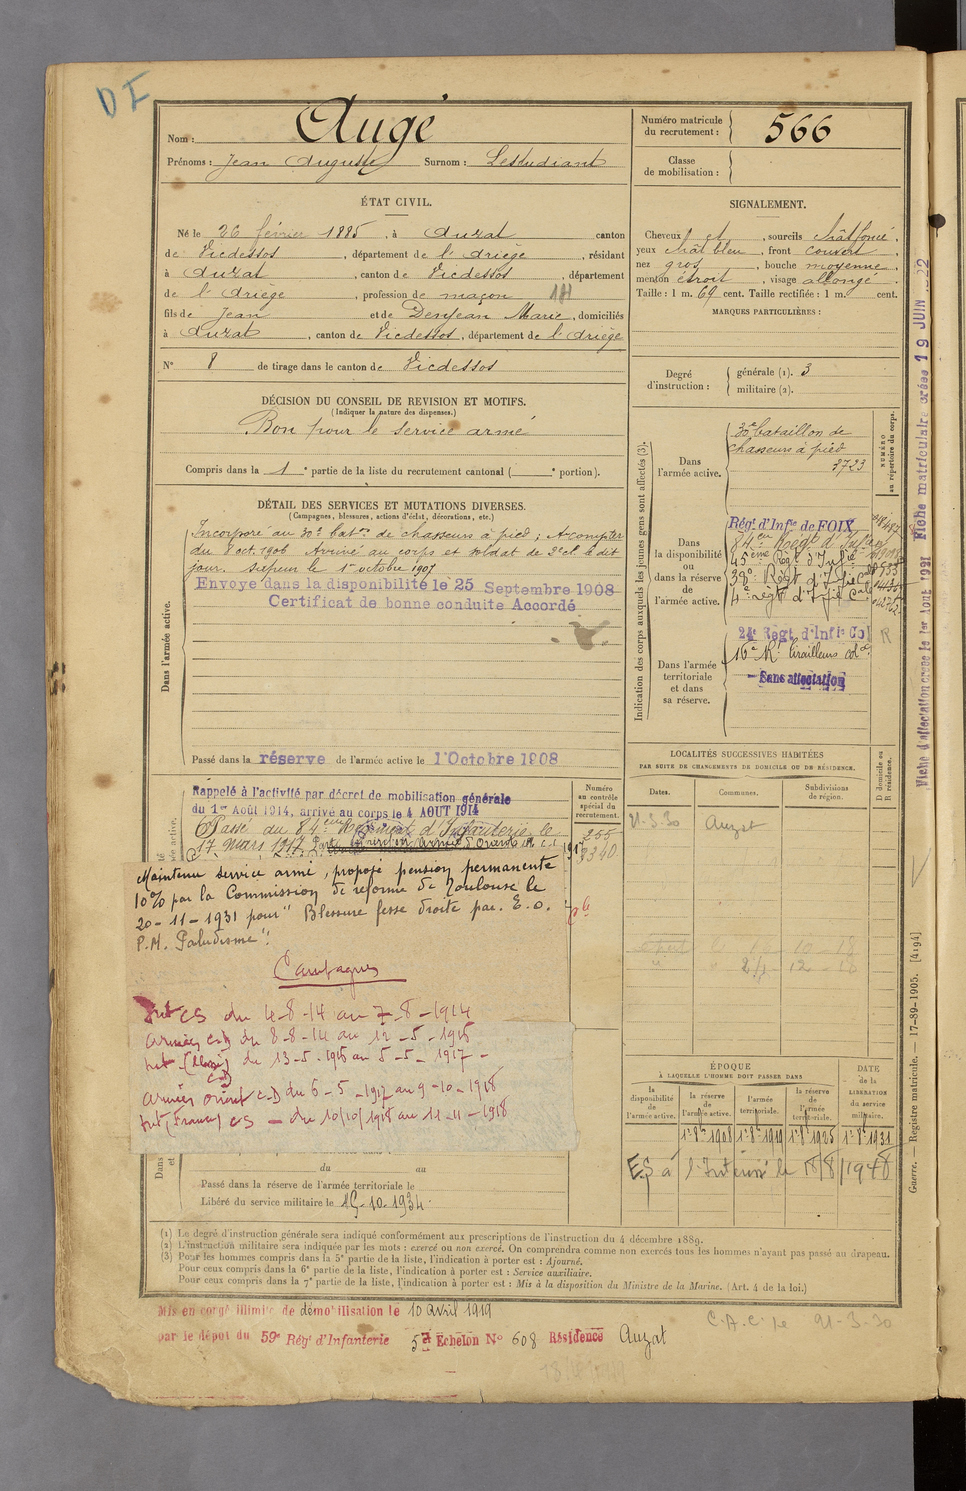 D I
Nom : Augé
Prénoms : Jean Auguste Surnom : Lestudiant
Numéro matricule du recrutement : 566
Classe de mobilisation :
ÉTAT CIVIL.
Né le 26 février 1885, à Auzat canton
de Vicdessos, département de l'Ariège, résidant
à Auzat, canton de Vicdessos, département
de l'Ariège, profession de maçon
fils de Jean et de Denjean Marie, domiciliés
à Auzat, canton de Vicdessos, département de l'Ariège
N° 8 de tirage dans le canton de Vicdessos
SIGNALEMENT.
Cheveux et, sourcils châtfoncé,
yeux chât bleu, front couvert,
nez gros, bouche moyenne,
menton étroit, visage allongé.
Taille : 1 m. 69 cent. Taille rectifiée : 1 m. cent.
MARQUES PARTICULIÈRES :
Degré d'instruction : générale (1). 3
militaire (2).
DÉCISION DU CONSEIL DE REVISION ET MOTIFS.
(Indiquer la nature des dispenses.)
Bon pour le service armé
Compris dans la 1e partie de la liste du recrutement cantonal ( e portion).
DÉTAIL DES SERVICES ET MUTATIONS DIVERSES.
(Campagnes, blessures, actions d'éclat, décorations, etc.)
Dans l'armée active.
Incorporé au 30e baton de chasseurs à pied ; A compter
du 8 oct. 1906 Arrivé au corps et soldat de 2e cl. le dit
jour. Sapeur le 1er octobre 1907
Envoyé dans la disponibilité le 25 Septembre 1908
Certificat de bonne conduite Accordé
Passé dans la réserve de l'armée active le 1 Octobre 1908
Indication des corps auxquels les jeunes gens sont affectés (3).
NUMÉRO au répertoire du corps.
Dans l'armée active.
30e bataillon de
chasseurs à pied
3723
Dans la disponibilité ou dans la réserve de l'armée active.
Régt d'Infie de FOIX
84eme Régt d'Infie
45ème Régt d'Infie
38e Régt d'Infie Cale
4e régt d'Infie Cale
Dans l'armée territoriale et dans sa réserve.
24e Régt d'Infie Col R
16e Rt Tirailleurs colx
Sans affectation
LOCALITÉS SUCCESSIVES HABITÉES
PAR SUITE DE CHANGEMENTS DE DOMICILE OU DE RÉSIDENCE.
Dates. Communes. Subdivisions de région. D domicile ou R résidence.
21-3-30 Auzat
Numéro au contrôle spécial du recrutement.
255
3340
Rappelé à l'activité par décret de mobilisation générale
du 1er Août 1914, arrivé au corps le 4 AOUT 1914
Passé au 84eme Régiment d'Infanterie le
17 mars 1917.
Maintenu service armé, proposé pension permanente
10% par la Commission de réforme de Toulouse le
20-11-1931 pour " Blessure fesse droite par E.O.
P.M. Paludisme".
Campagnes
Int CS du 4-8-14 au 7-8-1914
Armées CD du 8-8-14 au 12-5-1915
Int (blessé) CD du 13-5-1915 au 5-5-1917 -
Armées Orient CD du 6-5-1917 au 9-10-1918
Int (France) CS - du 10/10/1918 au 11-11-1918
ÉPOQUE
À LAQUELLE L'HOMME DOIT PASSER DANS
la disponibilité de l'armée active. la réserve de l'armée active. l'armée territoriale. la réserve de l'armée territoriale.
DATE de la LIBÉRATION du service militaire.
1er 8bre 1908 1er 8bre 1919 1er 8bre 1925 1er 8bre 1931
du au
Passé dans la réserve de l'armée territoriale le
Libéré du service militaire le 15-10-1934
(1) Le degré d'instruction générale sera indiqué conformément aux prescriptions de l'instruction du 4 décembre 1889.
(2) L'instruction militaire sera indiquée par les mots : exercé ou non exercé. On comprendra comme non exercés tous les hommes n'ayant pas passé au drapeau.
(3) Pour les hommes compris dans la 5e partie de la liste, l'indication à porter est : Ajourné.
Pour ceux compris dans la 6e partie de la liste, l'indication à porter est : Service auxiliaire.
Pour ceux compris dans la 7e partie de la liste, l'indication à porter est : Mis à la disposition du Ministre de la Marine. (Art. 4 de la loi.)
Mis en congé illimité de démobilisation le 10 avril 1919
par le dépôt du 59e Régt d'Infanterie 5e Echelon N° 608 Résidence Auzat
C.A.C. le 21-3-30
Fiche d'affectation créée le 1er Août 1921 Fiche matriculaire créée 19 JUIN 1922
Guerre. — Registre matricule. — 17-89-1905. [4194]